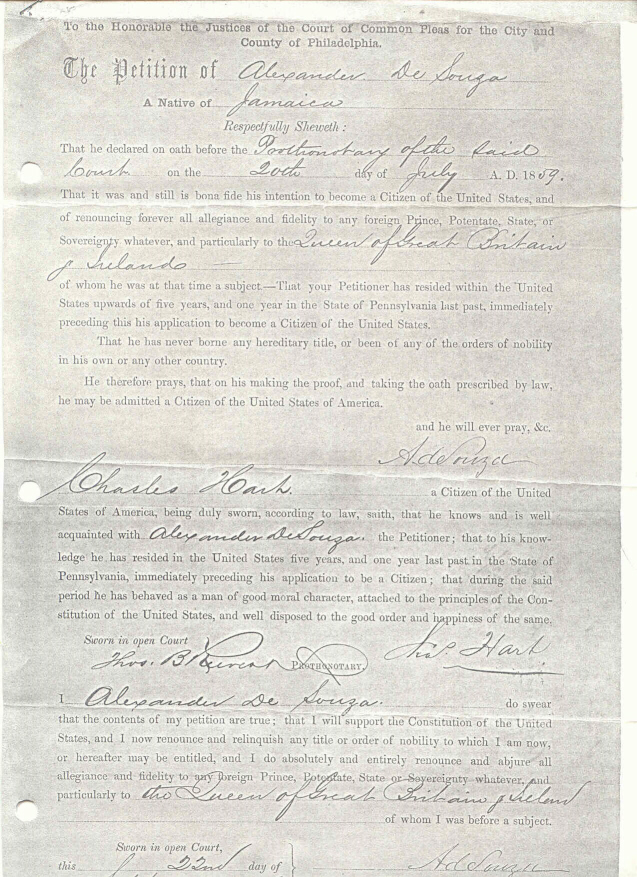 To the Honorable the Justices of the Court of Common Pleas for the City and
County of Philadelphia.
The Petition of Alexander De Souza
A Native of Jamaica
Respectfully Sheweth:
That he declared on oath before the Prothonotary of the said
Court on the 20th day of July A. D. 1859.
That it was and still is bona fide his intention to become a Citizen of the United States, and
of renouncing forever all allegiance and fidelity to any foreign Prince, Potentate, State, or
Sovereignty whatever, and particularly to the Queen of Great Britain
& Ireland
of whom he was at that time a subject.—That your Petitioner has resided within the United
States upwards of five years, and one year in the State of Pennsylvania last past, immediately
preceding this his application to become a Citizen of the United States.
That he has never borne any hereditary title, or been of any of the orders of nobility
in his own or any other country.
He therefore prays, that on his making the proof, and taking the oath prescribed by law,
he may be admitted a Citizen of the United States of America.
and he will ever pray, &c.
A de Souza
Charles Hart. a Citizen of the United
States of America, being duly sworn, according to law, saith, that he knows and is well
acquainted with Alexander De Souza. the Petitioner; that to his know-
ledge he has resided in the United States five years, and one year last past in the State of
Pennsylvania, immediately preceding his application to be a Citizen; that during the said
period he has behaved as a man of good moral character, attached to the principles of the Con-
stitution of the United States, and well disposed to the good order and happiness of the same.
Sworn in open Court
Thos. B PROTHONOTARY. Chas Hart
I Alexander De Souza. do swear
that the contents of my petition are true; that I will support the Constitution of the United
States, and I now renounce and relinquish any title or order of nobility to which I am now,
or hereafter may be entitled, and I do absolutely and entirely renounce and abjure all
allegiance and fidelity to any foreign Prince, Potentate, State or Sovereignty whatever, and
particularly to the Queen of Great Britain & Ireland
of whom I was before a subject.
Sworn in open Court,
this 22nd day of A d Souza